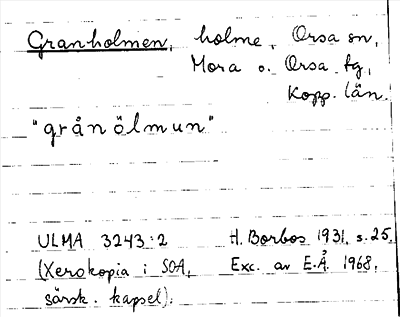 Granholmen, holme, Orsa sn,
Mora o. Orsa tg,
Kopp. län.
"grånölmun"
ULMA 3243:2 H. Borbos 1931. s. 25.
(Xerokopia i SOA, Exc. av E.Å. 1968.
särsk. kapsel).